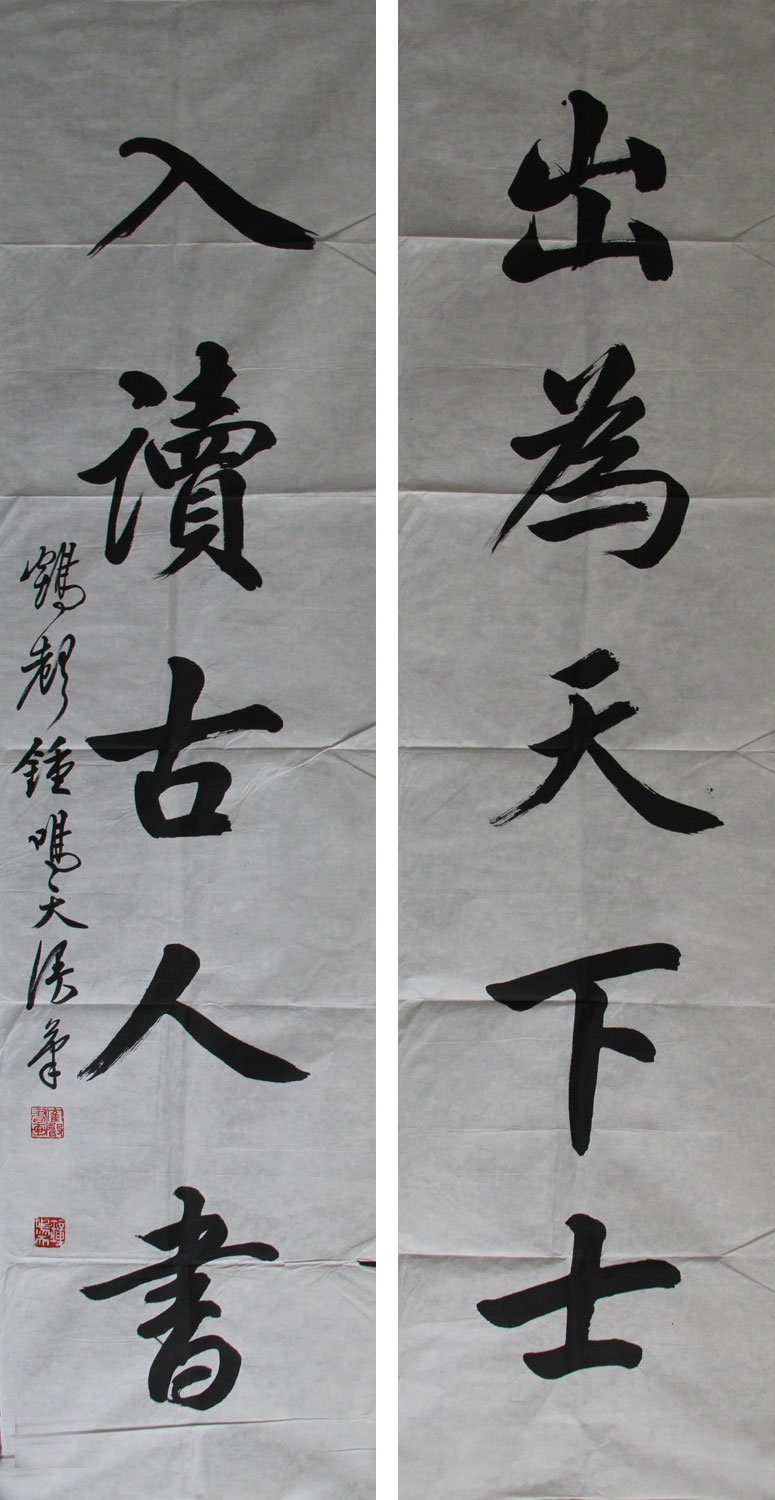 出為天下士
入讀古人書
鶴声鍾鳴天